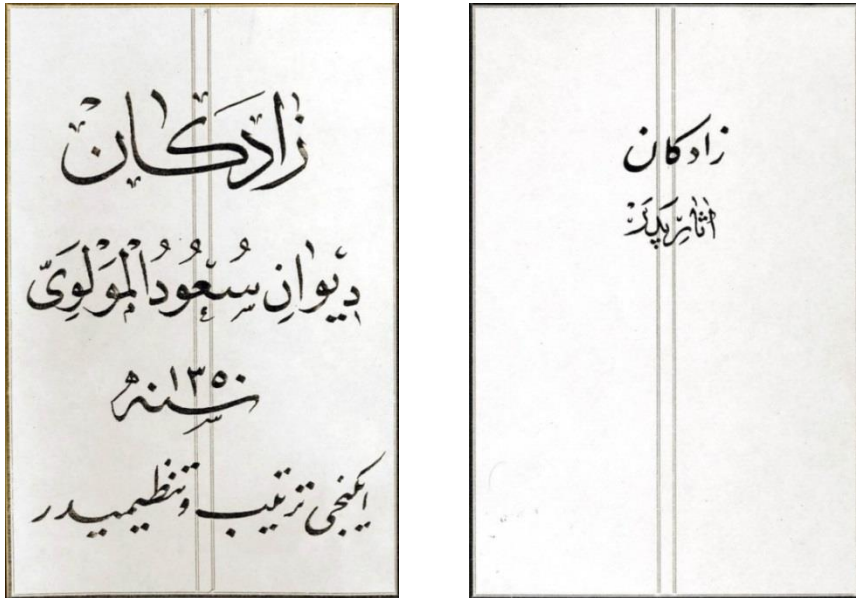 زادكان
ديوانِ سُعُودُ الْمَوْلَوِىّ
سنه ١٣٥٠
ايكنجى ترتيب و تنظيميدر
زادكان
اٰثارِ پَدَرْ